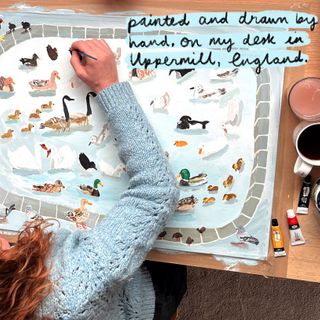 painted and drawn by
hand, on my desk in
Uppermill, England.